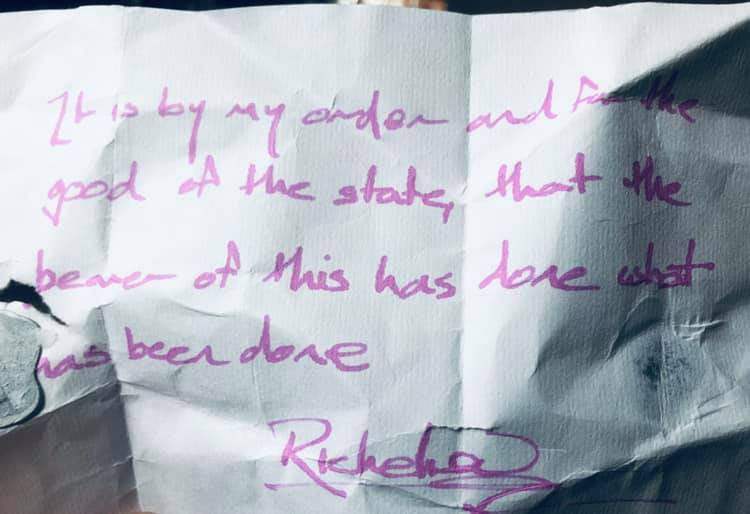 It is by my order and for the
good of the state, that the
bearer of this has done what
has been done
Richelieu